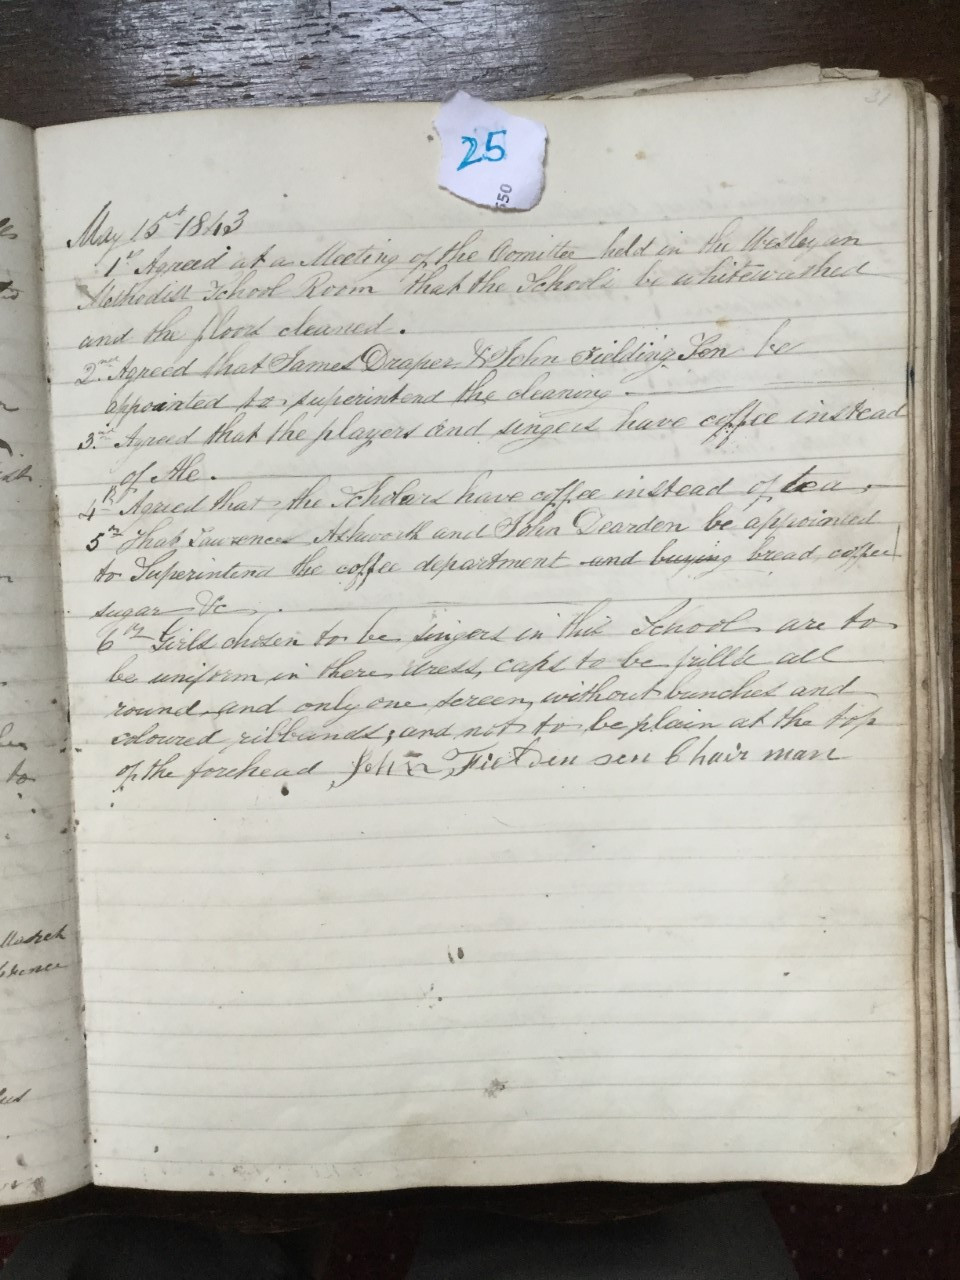 31
25
550
May 15st 1843
1st Agreed at a Meeting of the Comittee held in the Wesleyan
Methodist School Room that the Schools be whitewashed
and the floors cleaned.
2nd Agreed that James Draper & John Fielding Sen be
appointed to superintend the cleaning.
3rd Agreed that the players and singers have coffee instead
of Ale.
4th Agreed that the Scholars have coffee instead of tea.
5th That Lawrence Ashworth and John Dearden be appointed
to Superintend the coffee department and buying bread coffee
sugar &c.
6th Girls chosen to be singers in this School are to
be uniform in there dress, caps to be frill'd all
round and only one screen, without bunches and
coloured ribbands; and not to be plain at the top
of the forehead John Fielden sen Chair man
to